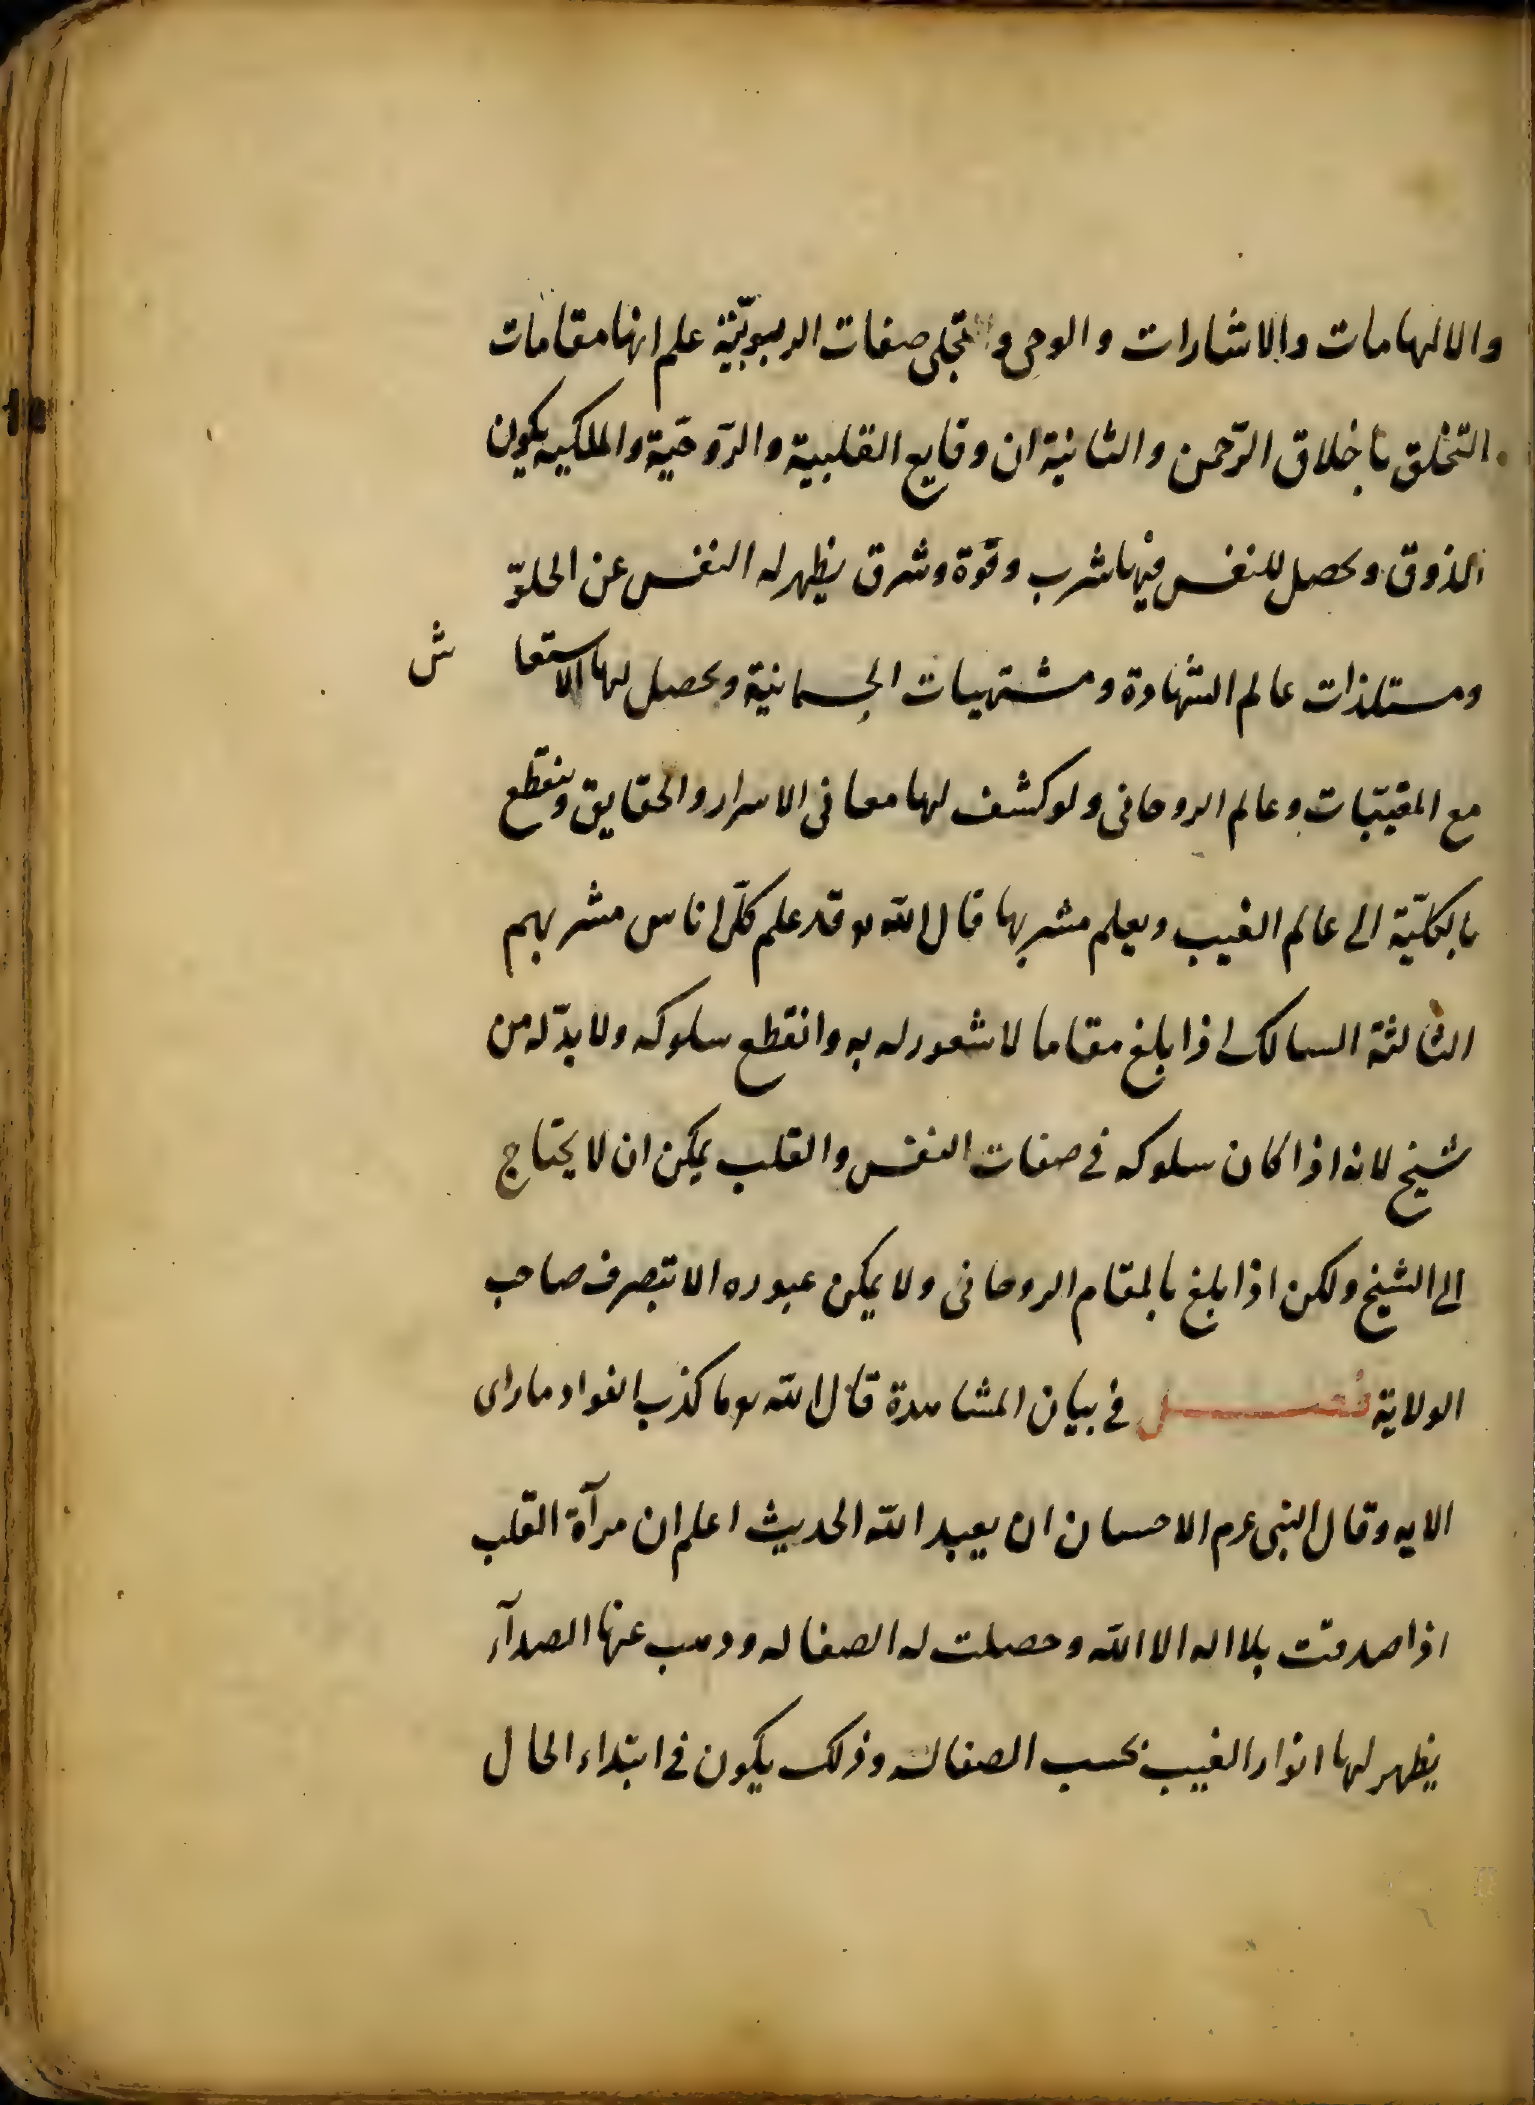 والالهامات والاشارات والوحى و تجلى صفات الربوبيّة علم انها مقامات
التخلق باخلاق الرّحمن والثانية ان وقايع القلبية والرّوحيّة والملكيه يكون
الذوق ويحصل للنفس فيها شرب وقوّة وشرق يظهر له النفس عن الحلوّ
ومستلذات عالم الشهادة ومشتهيات الجسمانية ويحصل لها الاستعاش
مع المغيّبات وعالم الروحانى ولو كشف لها معانى الاسرار والحقايق وينقطع
بالكليّة الى عالم الغيب ويعلم مشربها قال الله تع قد علم كلّ اناس مشربهم
الثالثة السالك اذا بلغ مقاما لا شعور له به وانقطع سلوكه ولا بدّ له من
شيخ لانه اذا كان سلوكه فى صفات النفس والقلب يمكن ان لا يحتاج
الى الشيخ ولكن اذا بلغ بالمقام الروحانى ولا يمكن عبوره الا بتصرف صاحب
الولاية فصل فى بيان المشاهدة قال الله تع ما كذب الفواد ما راى
الايه وقال النبى عرم الاحسان ان يعبد الله الحديث اعلم ان مرآة القلب
اذا صدقت بلا اله الا الله وحصلت له الصقاله وذهب عنها الصدآء
يظهر لها انوار الغيب بحسب الصقاله وذلك يكون فى ابتداء الحال